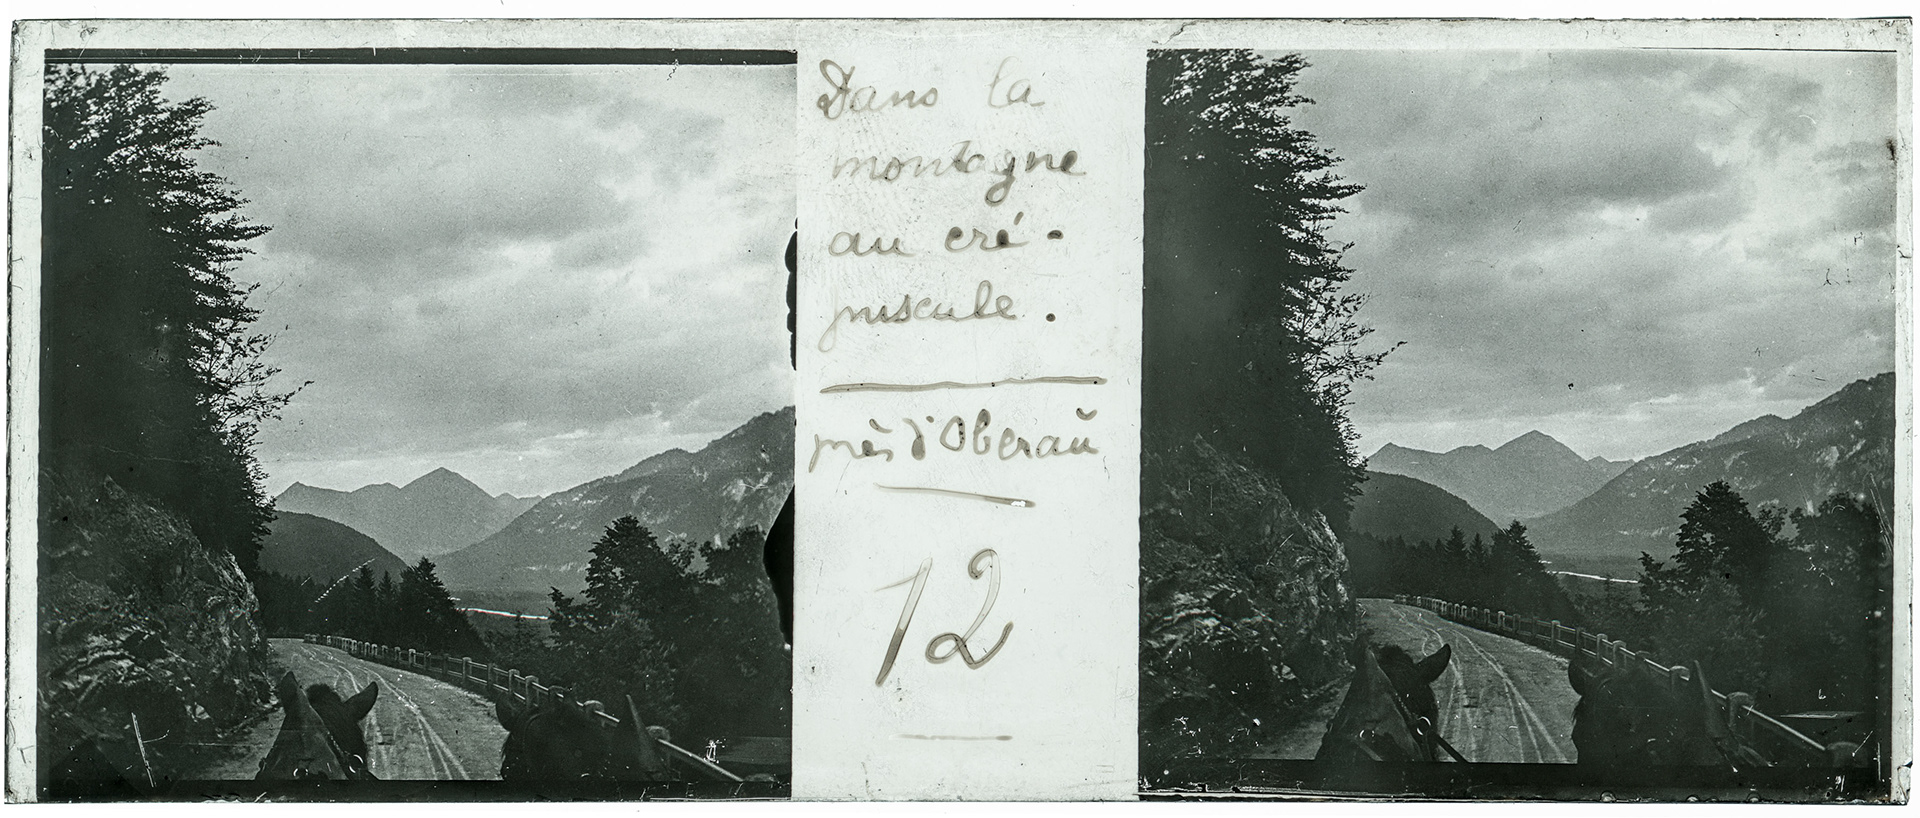 Dans la
montagne
au cré-
puscule.
près d'Oberaŭ
12